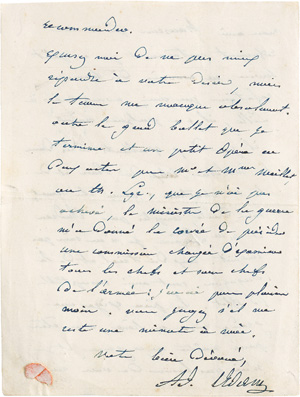 recommander.
excusez moi de ne pas mieux
répondre à votre désir, mais
le temps me manque absolument.
outre le grand ballet que je
termine et un petit opéra en
un acte pour Mr et Mme Meillet
au th. Lyr., que je n'ai pas
achevé, le ministre de la guerre
m'a donné la corvée de présider
une commission chargée d'examiner
tous les chefs et sous chefs
de l'armée;
main. vous jugez s'il me
reste une minute à moi.
votre bien dévoué,
Ad. Adam